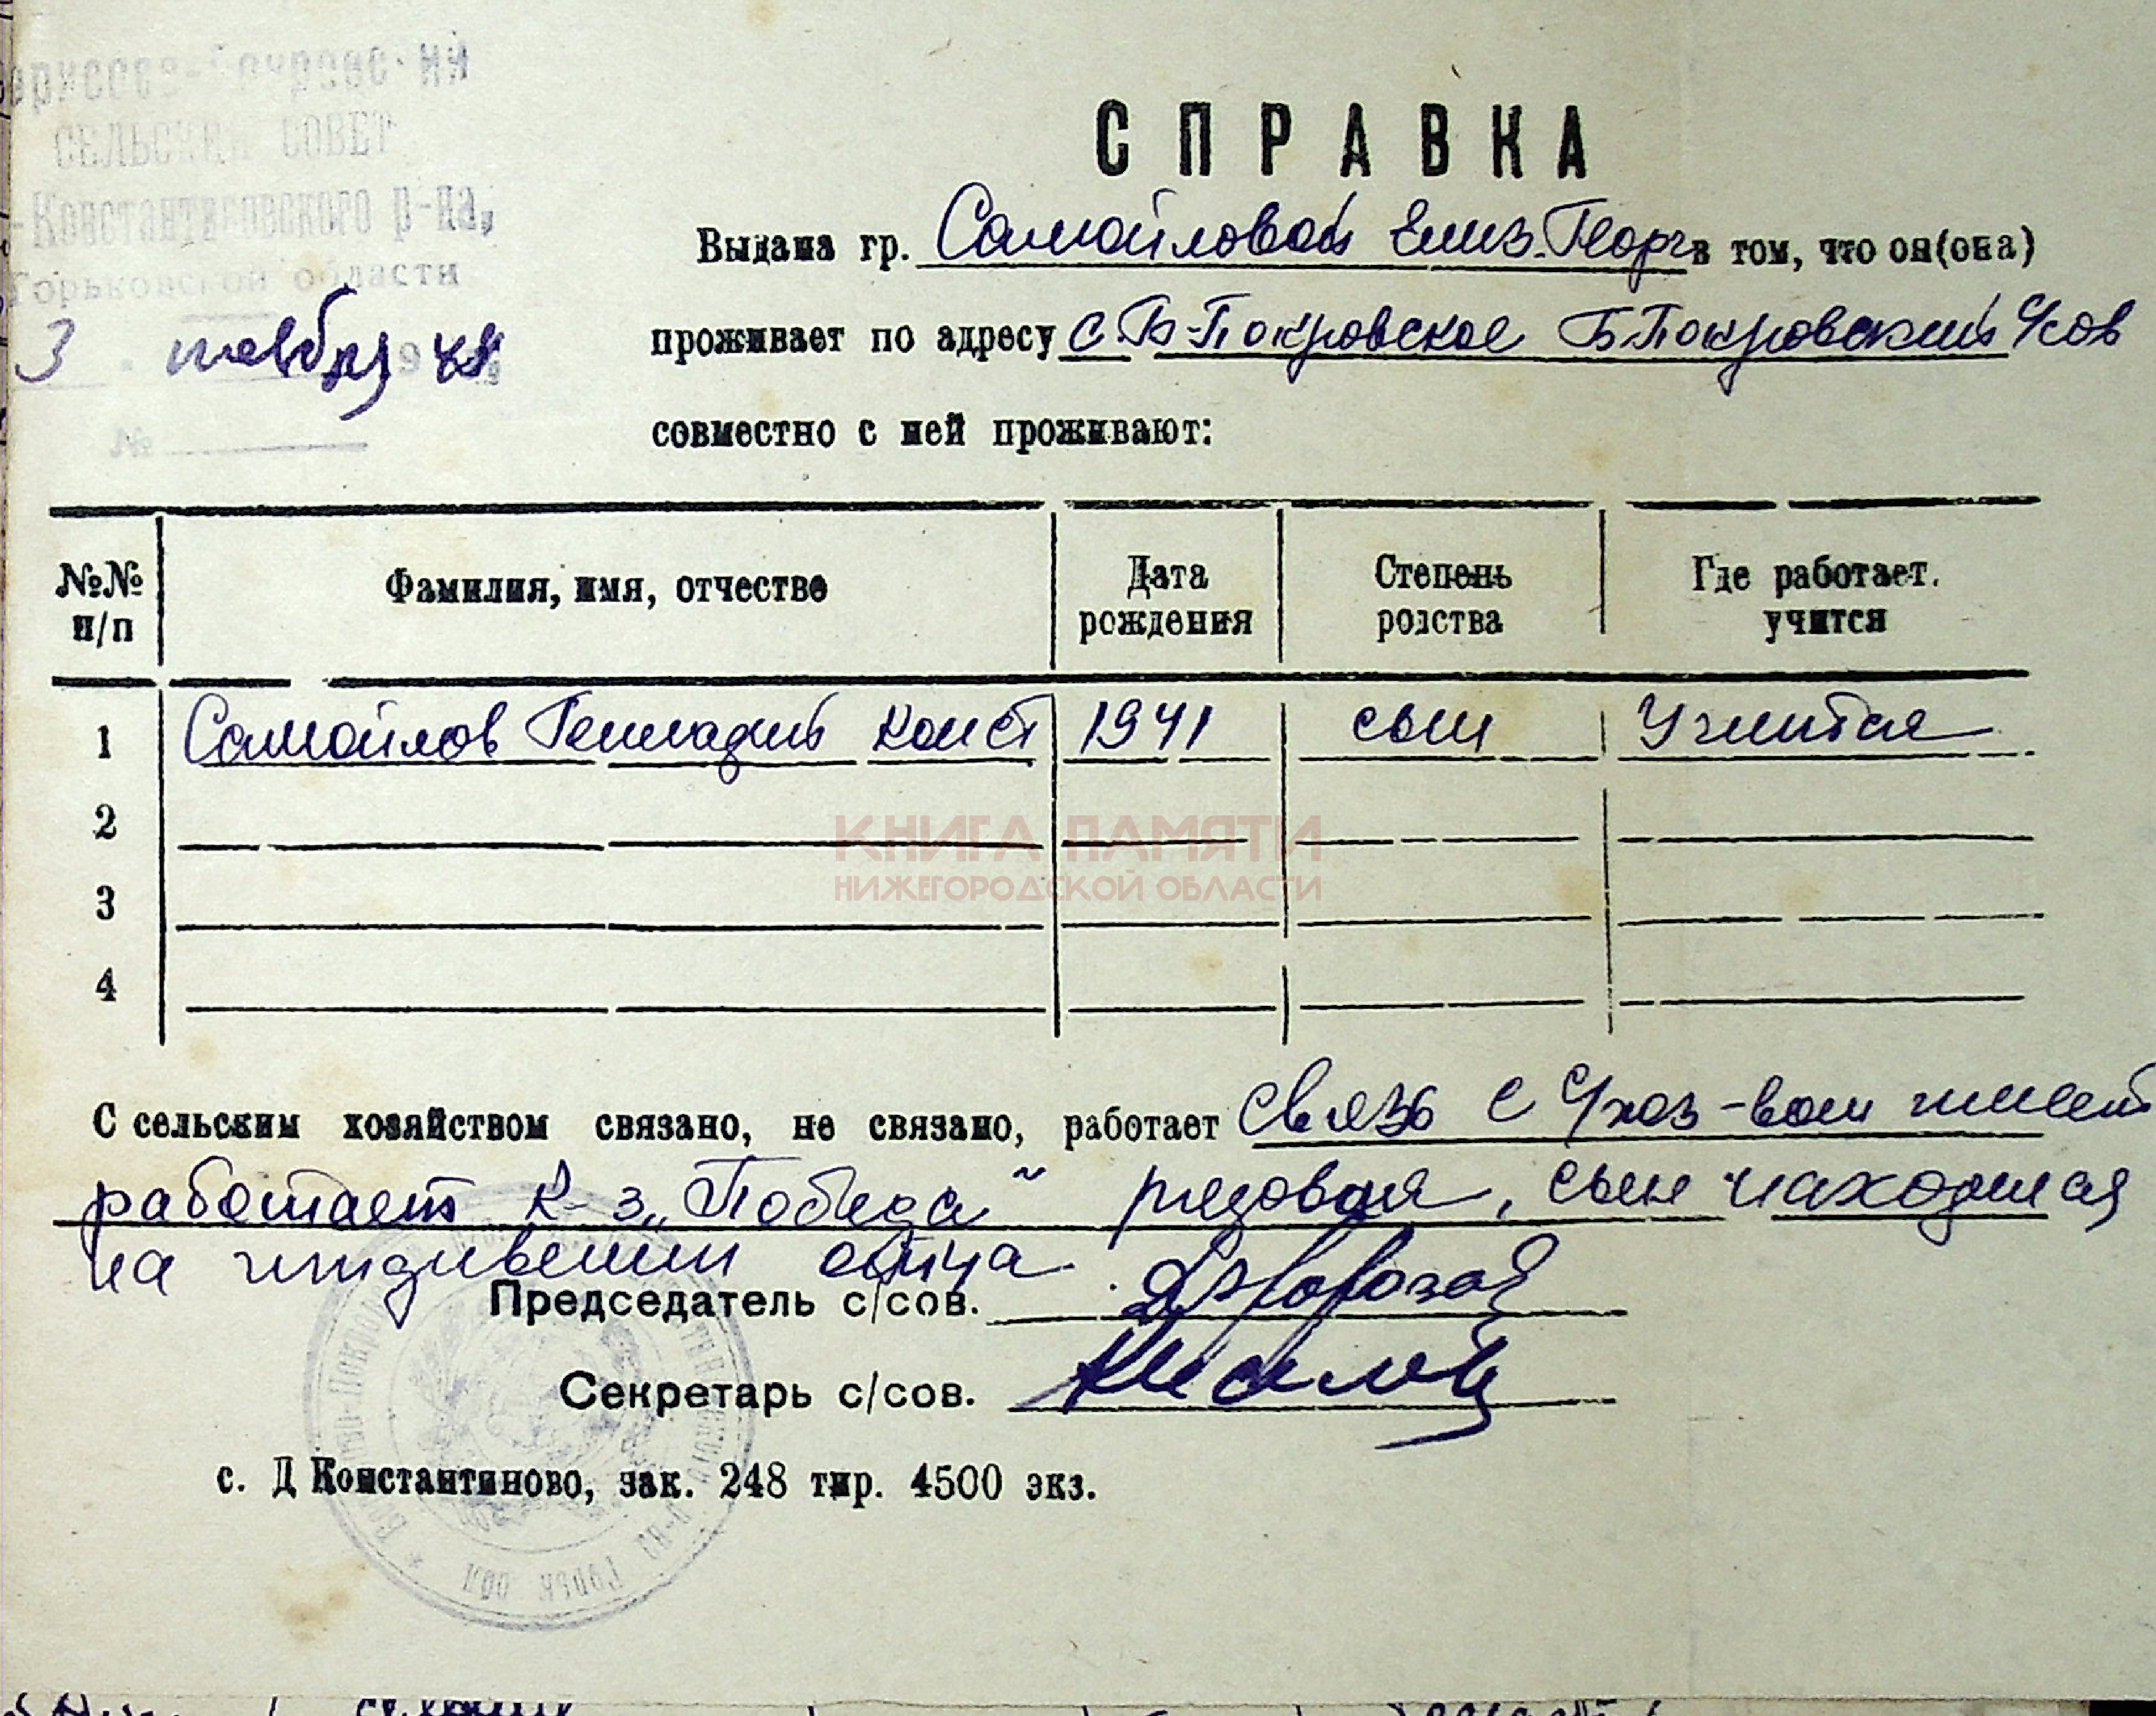 СЕЛЬСКИЙ СОВЕТ
-Константиновского р-на,
Горьковской области
3 ноября
№
СПРАВКА
Выдана гр. Самойловой Елиз. Георг в том, что он(она)
проживает по адресу с. Б-Покровское Б Покровский с/сов
совместно с ней проживают:
№№ п/п Фамилия, имя, отчество Дата рождения Степень родства Где работает. учится
1 Самойлов Геннадий Конст 1941 сын Учится
2
3
4
КНИГА ПАМЯТИ
НИЖЕГОРОДСКОЙ ОБЛАСТИ
С сельским хозяйством связано, не связано, работает связь с с/хоз-вом имеет
работает к-з „Победа" рядовая, сын находился
на иждивении отца.
Председатель с/сов.
Секретарь с/сов.
с. Д Константиново, зак. 248 тир. 4500 экз.